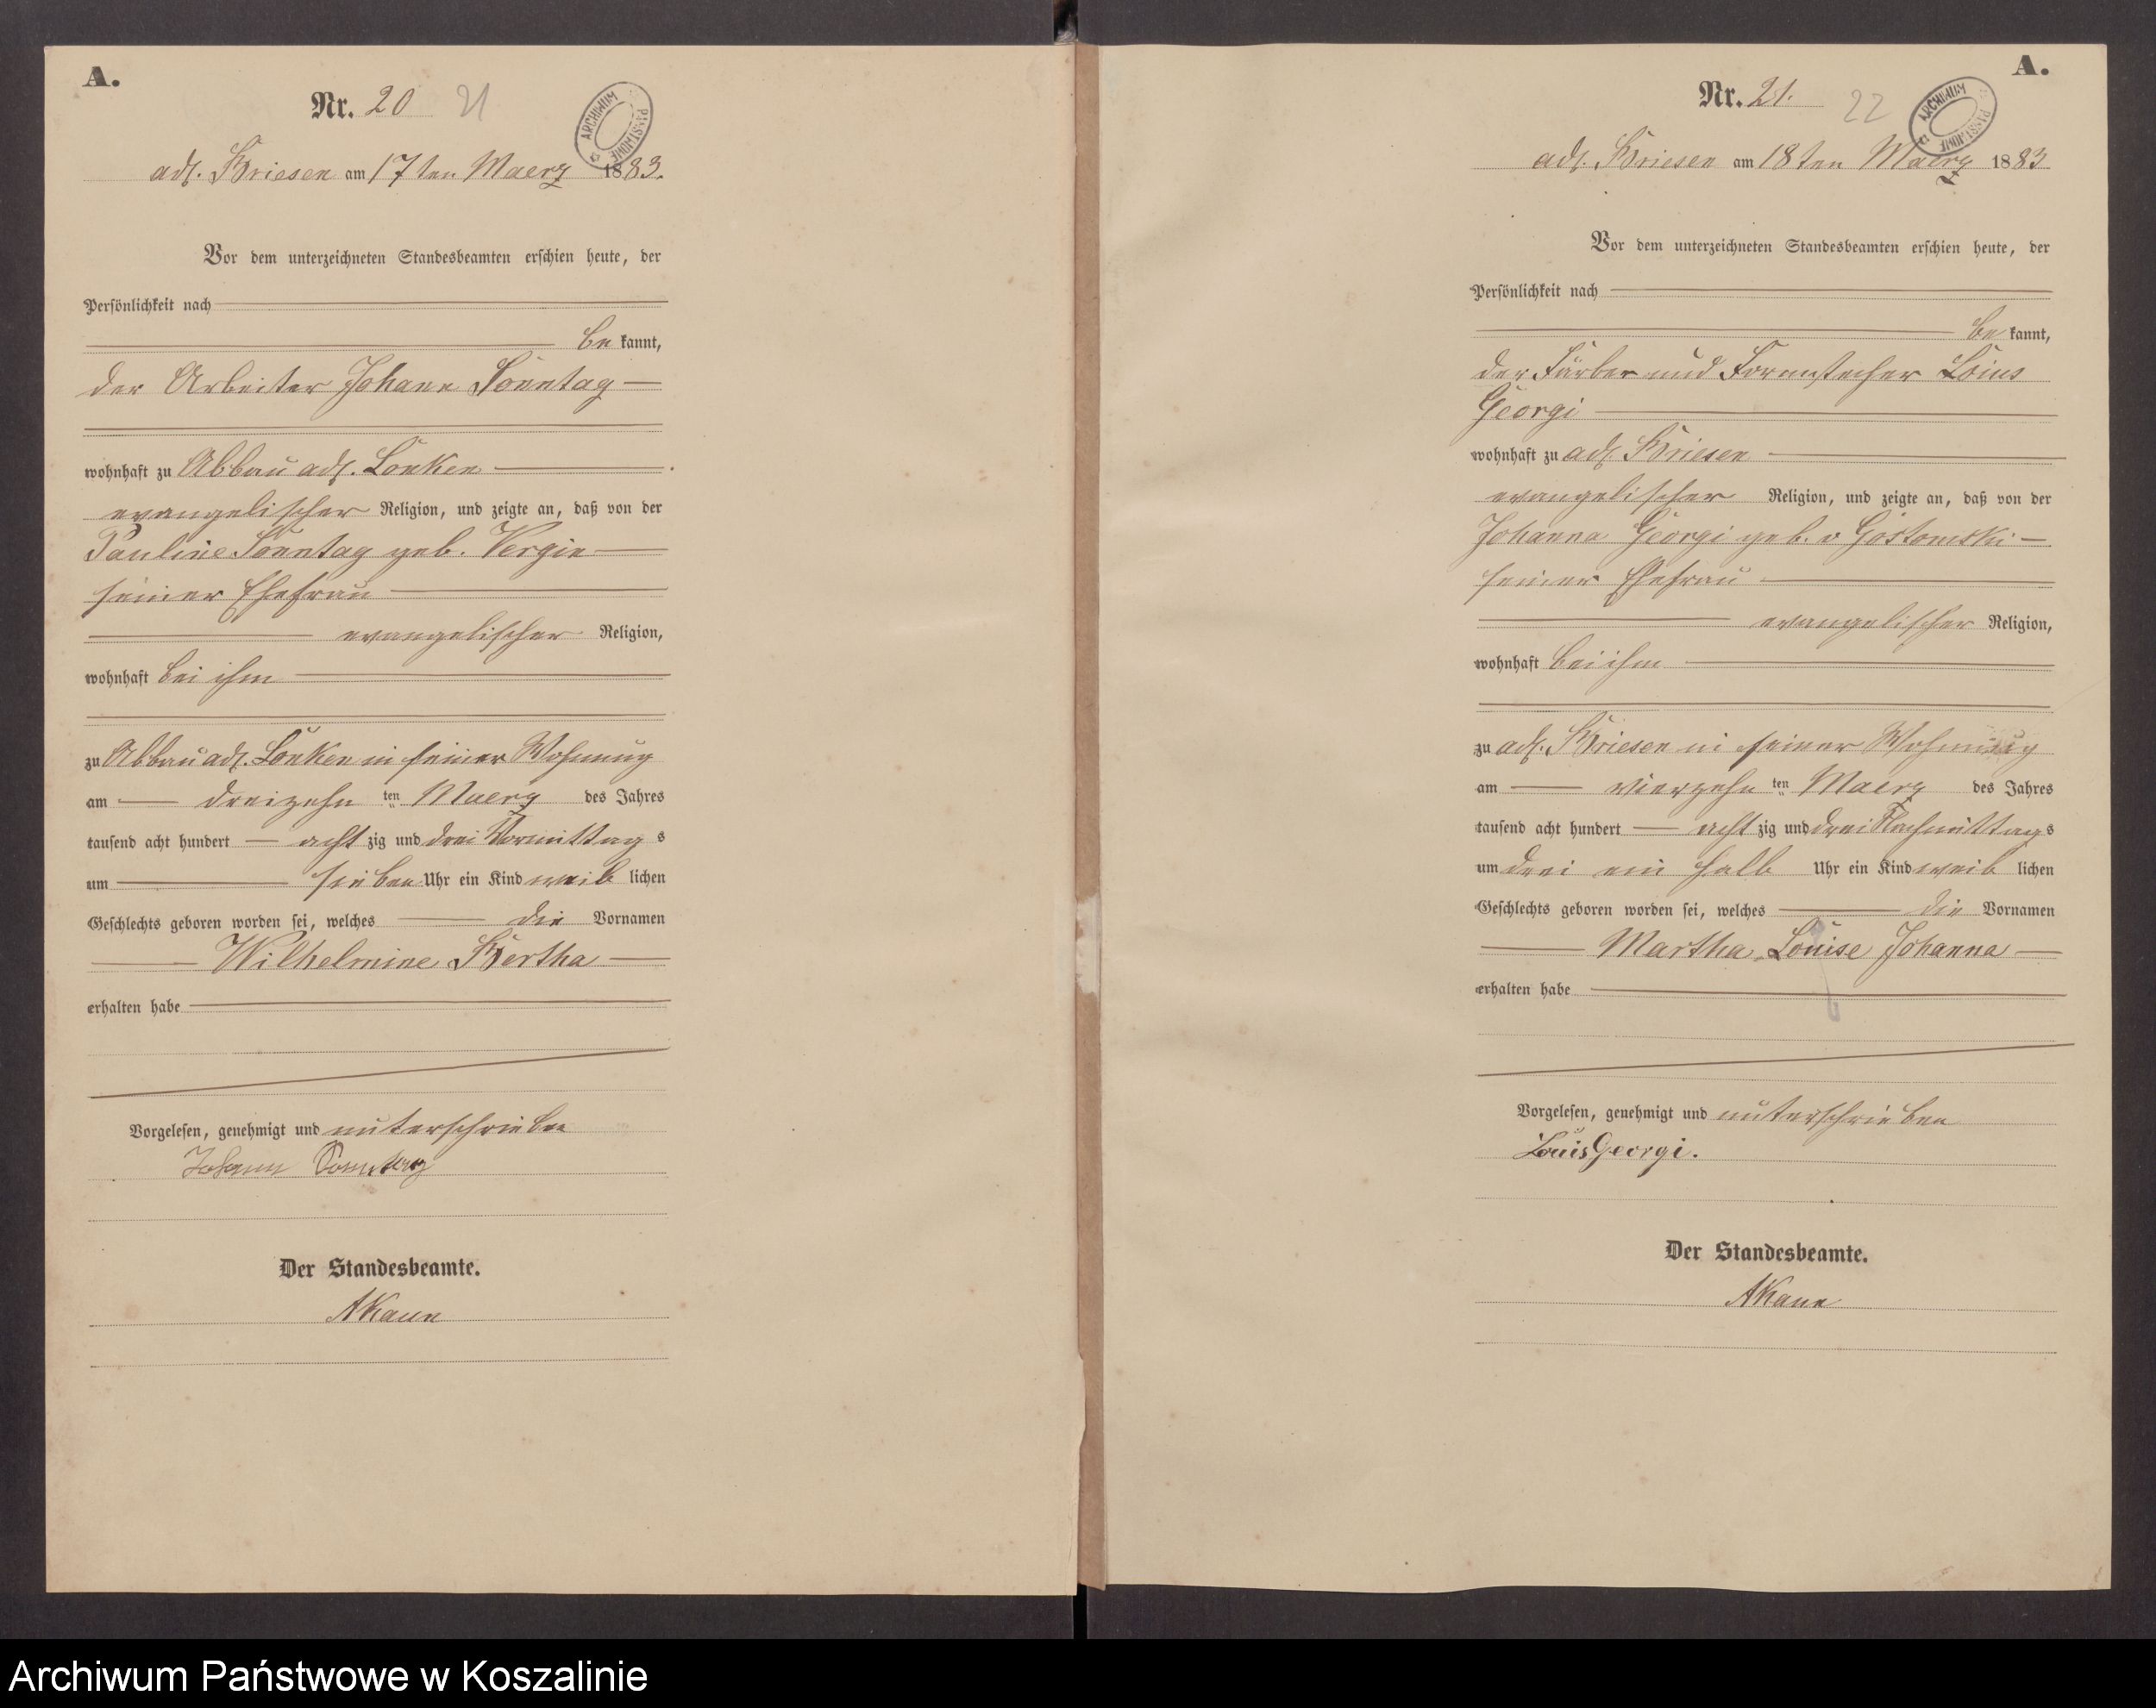 A.
Nr. 20 21
ARCHIWUM PAŃSTWOWE
adl. Briesen am 17ten Maerz 1883.
Vor dem unterzeichneten Standesbeamten erschien heute, der
Persönlichkeit nach
be kannt,
der Arbeiter Johann Sonntag
wohnhaft zu Abbau adl. Lonken
evangelischer Religion, und zeigte an, daß von der
Pauline Sonntag geb. Vergin
seiner Ehefrau
evangelischer Religion,
wohnhaft bei ihm
zu Abbau adl. Lonken in seiner Wohnung
am dreizehn ten Maerz des Jahres
tausend acht hundert acht zig und drei Vormittag s
um sieben Uhr ein Kind weib lichen
Geschlechts geboren worden sei, welches die Vornamen
Wilhelmine Bertha
erhalten habe
Vorgelesen, genehmigt und unterschrieben
Johann Sonntag
Der Standesbeamte.
A.
Nr. 21. 22
ARCHIWUM PAŃSTWOWE
adl. Briesen am 18ten Maerz 1883
Vor dem unterzeichneten Standesbeamten erschien heute, der
Persönlichkeit nach
be kannt,
der Färber und Formstecher Loius
Georgi
wohnhaft zu adl. Briesen
evangelischer Religion, und zeigte an, daß von der
Johanna Georgi geb. v Gostomski
seiner Ehefrau
evangelischer Religion,
wohnhaft bei ihm
zu adl. Briesen in seiner Wohnung
am vierzehn ten Maerz des Jahres
tausend acht hundert acht zig und drei Nachmittag s
um drei ein halb Uhr ein Kind weib lichen
Geschlechts geboren worden sei, welches die Vornamen
Martha Louise Johanna
erhalten habe
Vorgelesen, genehmigt und unterschrieben
Louis Georgi.
Der Standesbeamte.
Archiwum Państwowe w Koszalinie